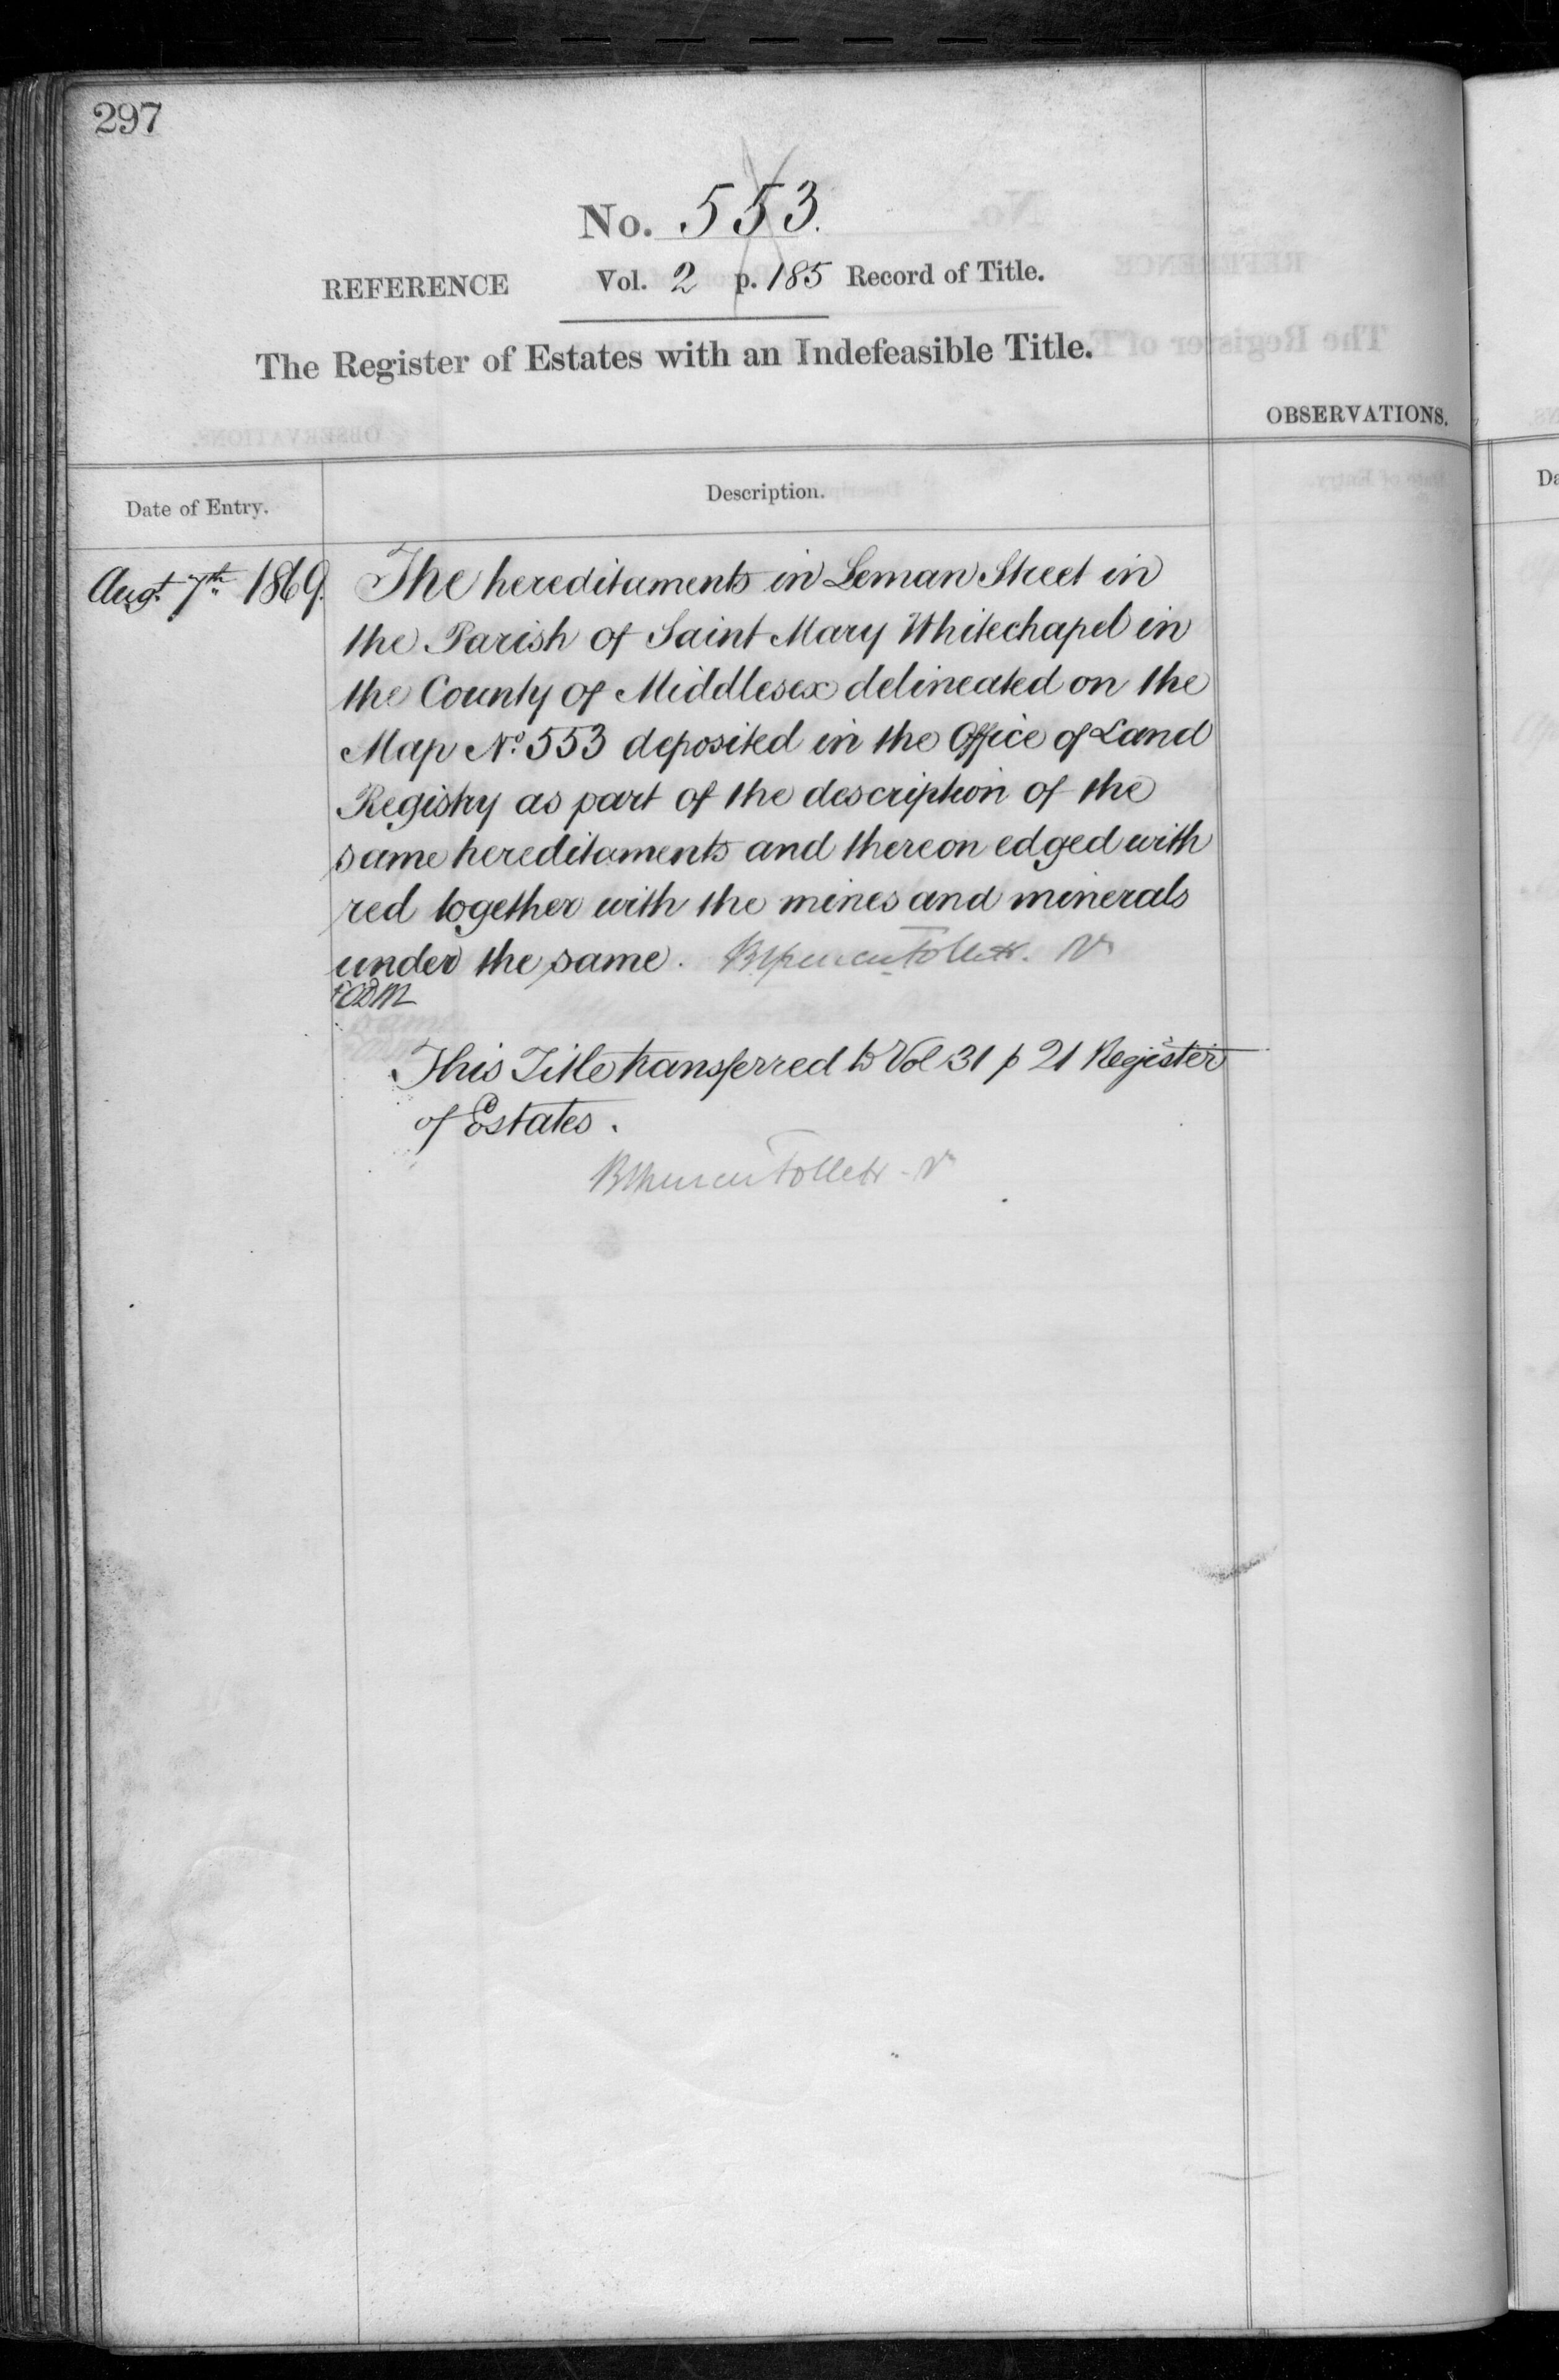 297
No. 553.
REFERENCE Vol. 2 p. 185 Record of Title.
The Register of Estates with an Indefeasible Title.
OBSERVATIONS.
Date of Entry.
Description.
Augt. 7th 1869.
The hereditaments in Leman Street in
the Parish of Saint Mary Whitechapel in
the County of Middlesex delineated on the
Map No. 553 deposited in the Office of Land
Registry as part of the description of the
same hereditaments and thereon edged with
red together with the mines and minerals
under the same. Follett.
This Title transferred to Vol 31 p 21 Register
of Estates.
Follett